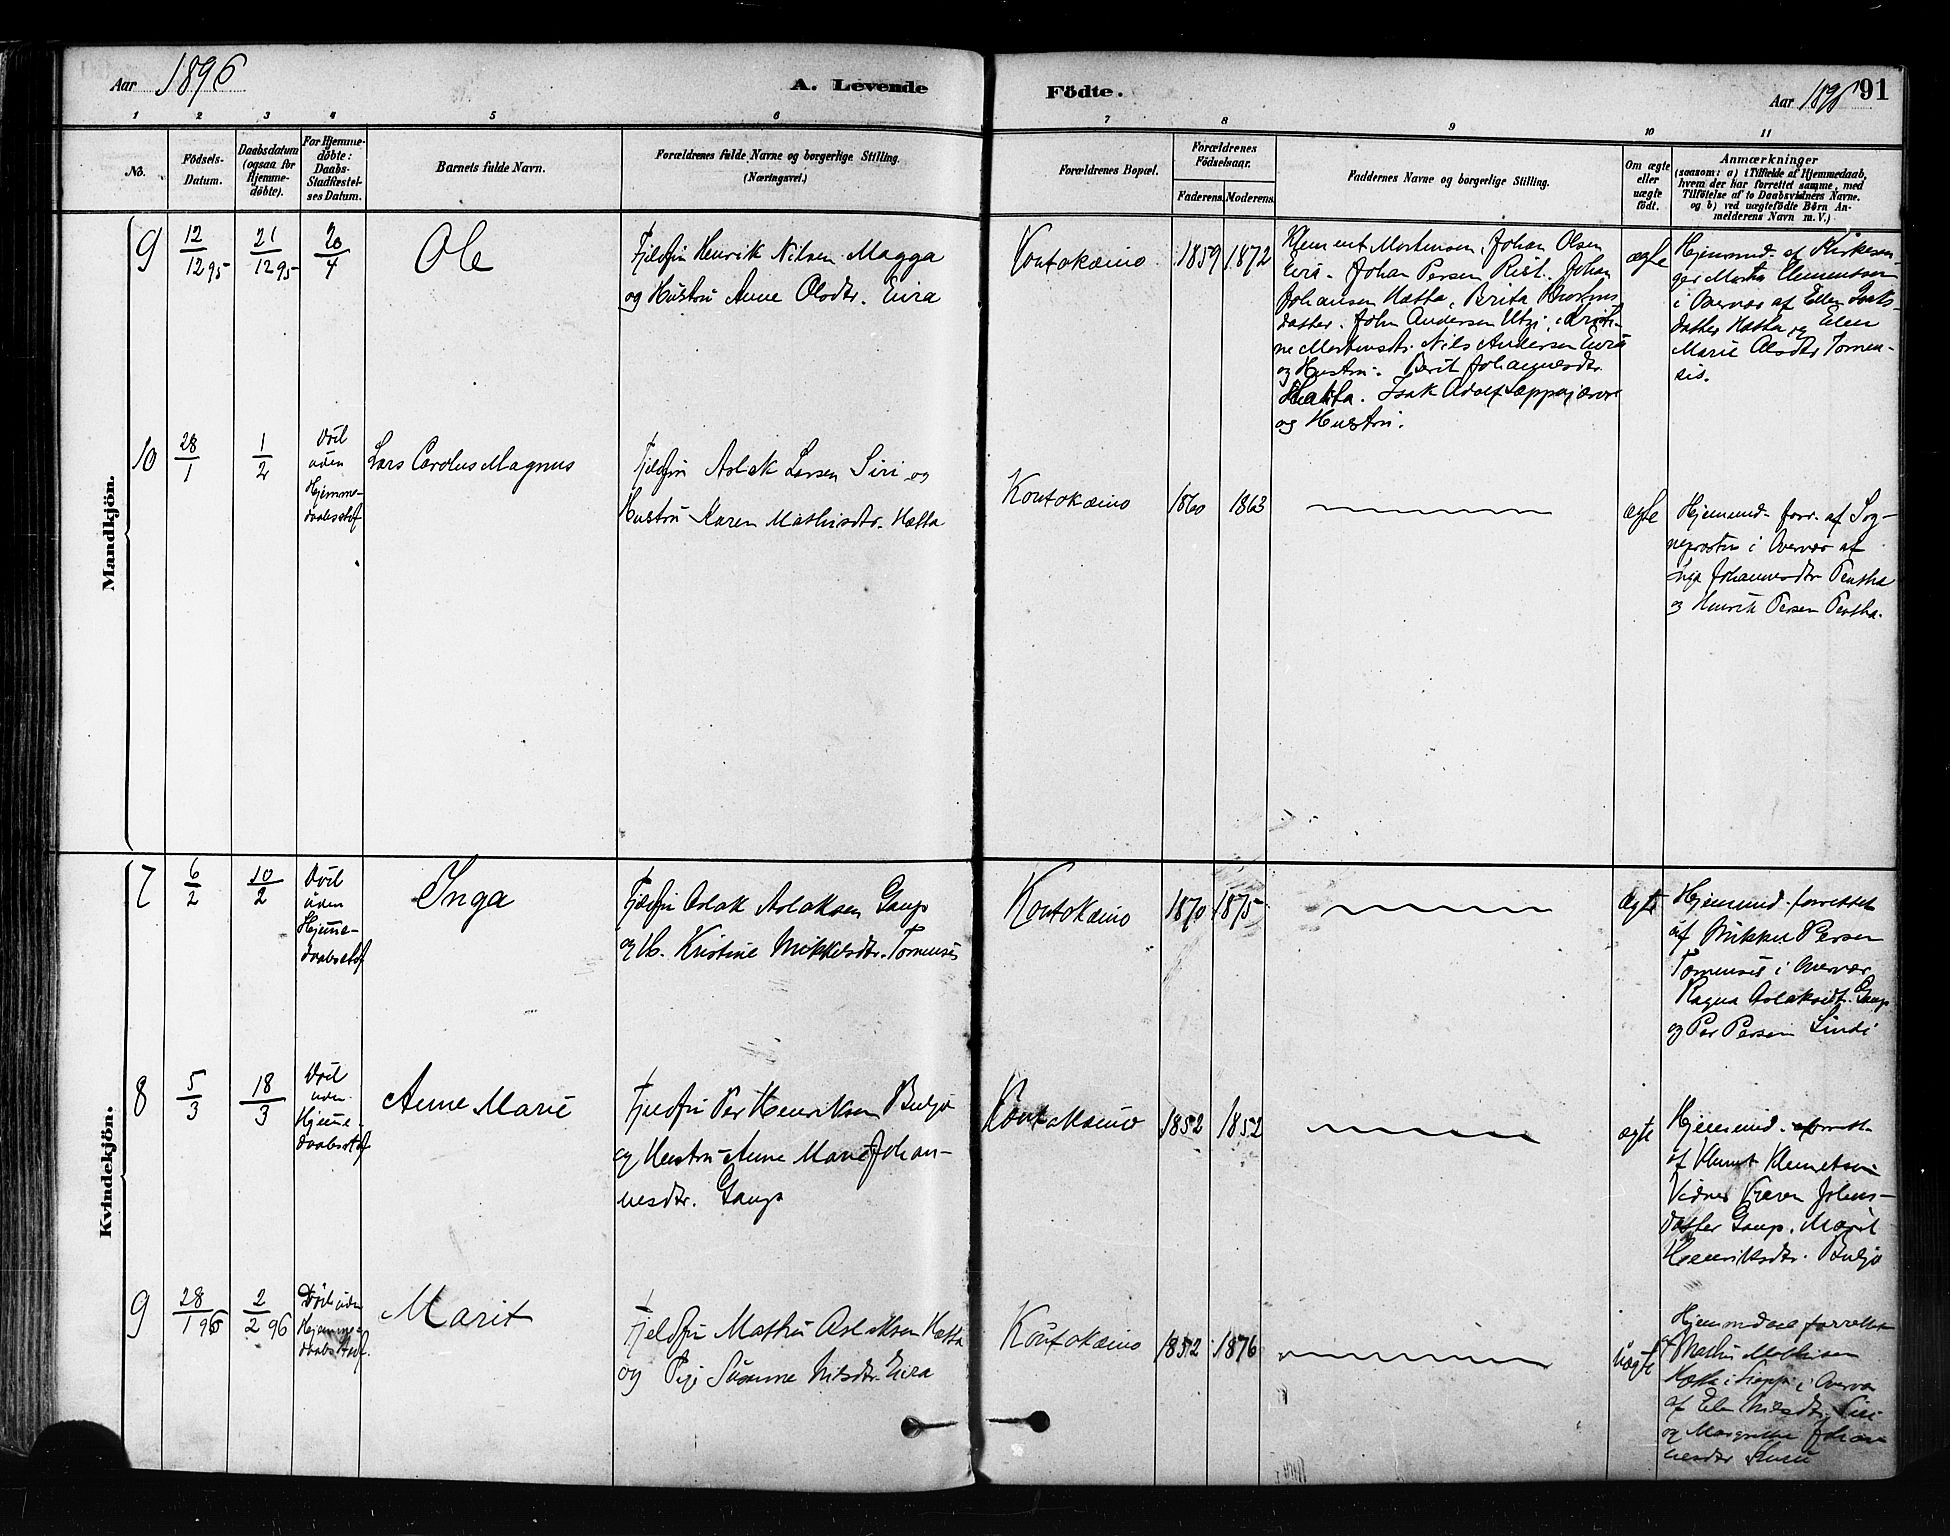 Aar 1896
A. Levende
Födte.
Aar 1896
91
1 2 3 4 5 6 7 8 9 10 11
No.
Födsels-
Datum.
Daabsdatum
(ogsaa for
Hjemme-
döbte).
For Hjemme-
döbte:
Daabs-
Stadfæstel-
ses Datum.
Barnets fulde Navn.
Forældrenes fulde Navne og borgerlige Stilling.
(Næringsvei.)
Forældrenes Bopæl.
Forældrenes
Födselsaar.
Faderens. Moderens.
Faddernes Navne og borgerlige Stilling.
Om ægte
eller
uægte
födt.
Anmærkninger
(saasom: a) i Tilfælde af Hjemmedaab,
hvem der har forrettet samme, med
Tilföielse af to Daabsvidners Navne.
og b) ved uægtefödte Börn An-
melderens Navn m. V.)
Mandkjön.
9
12/12 95
21/12 95
20/4
Ole
Fjeldfin Henrik Nilsen Magga
og Hustru Anne Olsdtr. Eira
Kontokæino
1859
1872
Klement Mortensen, Johan Olsen
Eira. Johan Persen Rist. Johan
Johansen Hætta, Brita
datter. John Andersen Utzi, Kristi-
ne Mortensdtr. Nils Andersen Eira
og Hustru. Berit Johannesdtr.
Hætta. Isak Adolf Leppæjærvi
og Hustru.
ægte
Hjemmd. af Kirkesan-
ger Martin Clementsen
i Overvær af Ellen Isaks-
datter Hætta og Elen
Marie Olsdtr Tornen-
sis.
10
28/1
1/2
Död
uden
Hjemme-
daabsstadf
Lars Carolus Magnus
Fjeldfin Aslak Larsen Siri og
Hustru Karen Mathisdtr. Hætta
Kontokæino
1860
1863
ægte
Hjemmd. forr. af Sog-
nepresten i Overvær af
Inga Johannesdtr Pentha
og Henrik Persen Pentha.
Kvindekjön.
7
6/2
10/2
Död
uden
Hjemme-
daabsstadf
Inga
Fjeldfin Aslak Aslaksen Gaup
og H. Kristine Mikkelsdtr. Tornensis
Kontokæino
1870
1875
Ægte
Hjemmd. forrettet
af Mikkel Persen
Tornensis i Overvær
Ragna Aslaksdt. Gaup
og Per Persen Sindi
8
5/3
18/3
Död
uden
Hjemme-
daabsstadf
Anne Marie
Fjeldfin Per Henriksen Buljo
og Hustru Anne Marie Johan-
nesdtr. Gaup
Kontokæino
1852
1852
ægte
Hjemmd. forrett.
af Klemet Klemetsen
Vidner Karen Johns-
datter Gaup. Marit
Henriksdtr. Buljo
9
28/1 96
2/2 96
Död uden
Hjemme-
daabsstadf.
Marit
Fjeldfin Mathis Aslaksen Hætta
og Pige Susanne Nilsdtr. Eira
Kontokæino
1852
1876
uægte
Hjemmdaab forrettet
af Mathis Mathisen
Hætta i Sieppi i Overvær
af Elen Nilsdtr. Siri
og Margrethe Johan-
nesdtr